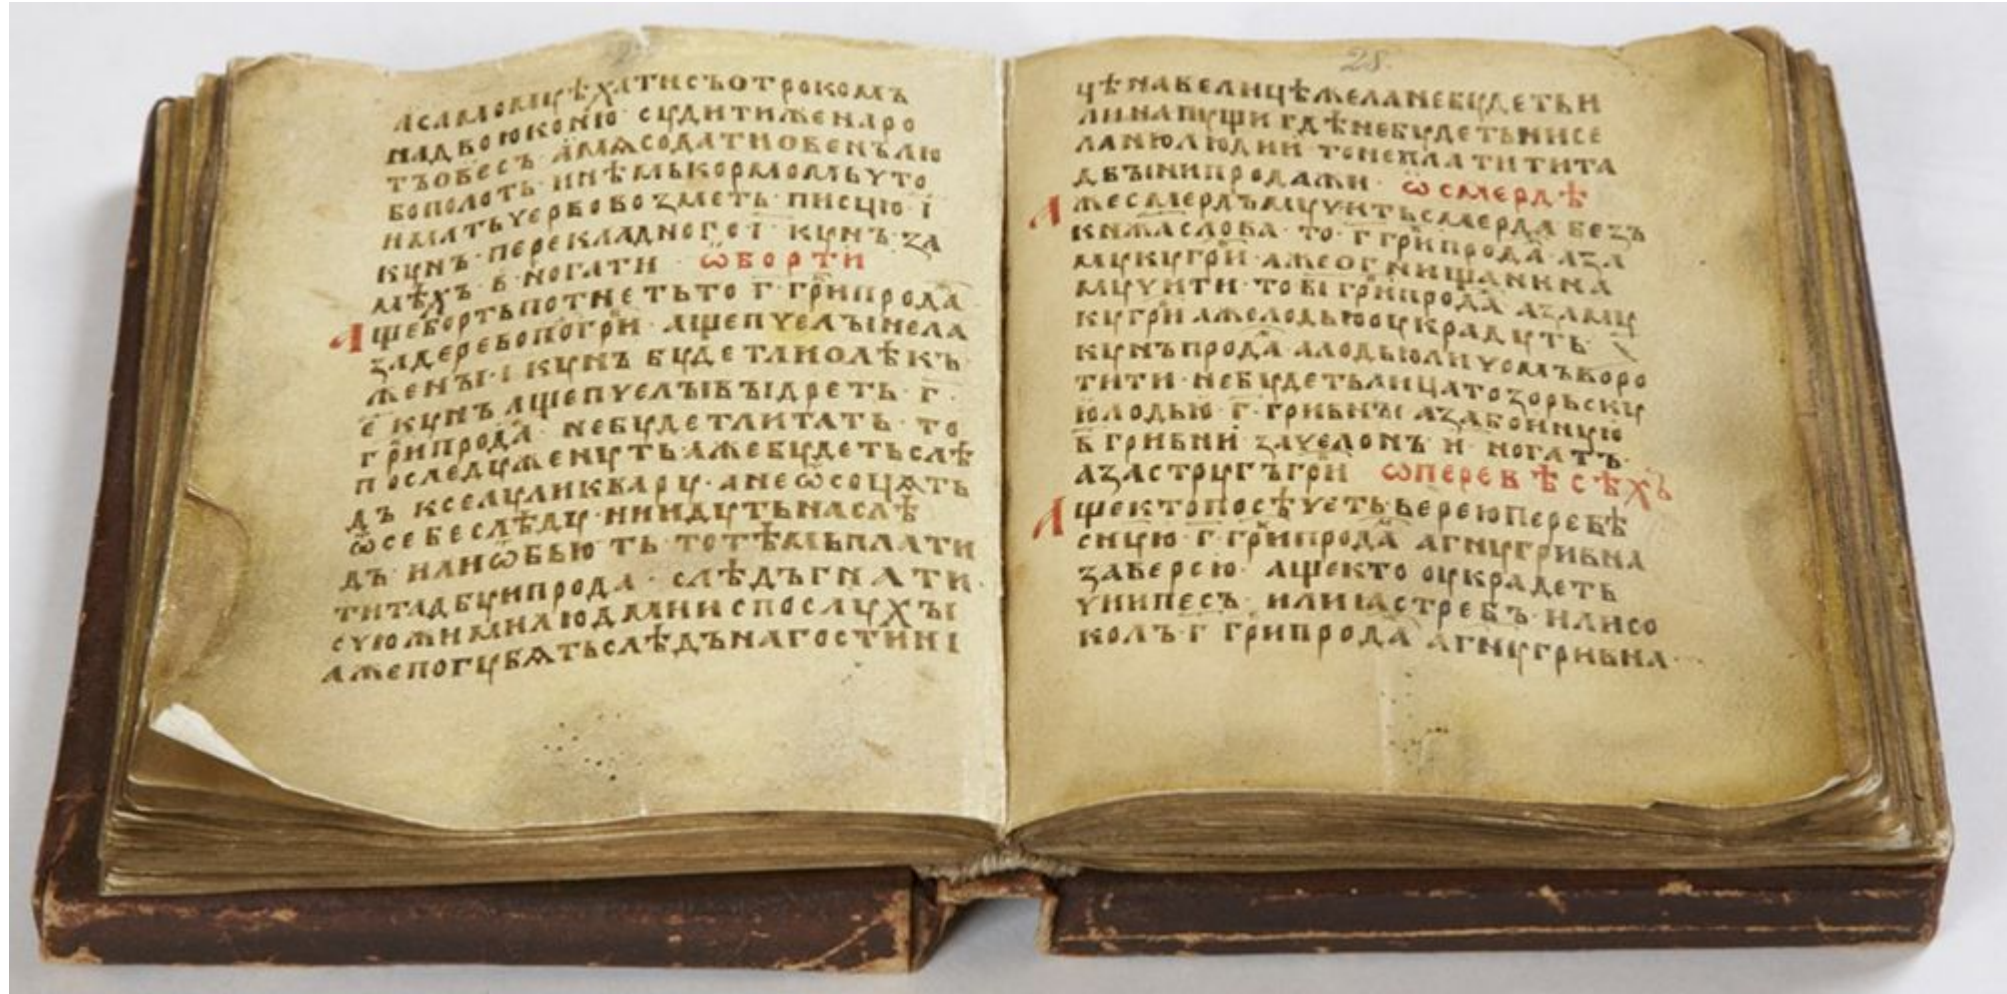 асамомꙋѣхатисъотрокомъ
надвоюконю · сꙋдитиженаро
тъовесъ · амѧсодатиовенълю
бополоть · инѣмькормомьчто
имать чербовозметь · писцю · і҃
кꙋнъ · перекладного і҃ · кꙋнъ · за
мѣхъ · в҃ · ногати · ѡборти
Ащебортьпотнетьто г҃ · гр҃нипрода
задеревополъгр҃н · ащепчелъінела
женъі · і҃ кꙋнъ бꙋдетлиолѣкъ
е҃ кꙋнъ ащепчелъівъідреть · г҃ ·
гр҃нпрода · небꙋдетлитать · то
последꙋженꙋть · ажебꙋдетьслѣ
дъ кселꙋликварꙋ · анеѿсочѧть
ѿсебеслѣдꙋ · ниидꙋтьнаслѣ
дъ · илиѿбьють · тотѣмьплати
титадбꙋипрода · слѣдъгнати ·
счюжимилюдминспослꙋхъі
ажепогꙋбѧтьслѣдънагостині
28
цѣнавелицѣжеланебꙋдетьи
линапꙋщи гдѣнебꙋдетьнисе
ланилюдии · тонеплатитита
двъінипродажи · ѡсмердѣ
Ажесмердъмꙋчитьсмердабезъ
кнѧжаслова · то · г҃ гр҃нипрода · аза
мꙋкꙋгр҃н · ажеогнищанина
мꙋчити · тов҃ігр҃нипрода азамꙋ
кꙋгр҃н ажелодьюоукрадꙋть ·
кꙋнъпрода · алодьюличомъворо
тити · небꙋдетьлицатозорьскꙋ
юлодью · г҃ · гривнъі азабоиную
в҃ гривни · зачелонъ · и҃ · ногатъ ·
азастрꙋгъгр҃н ѡперевѣсѣхъ
Ащектопосѣчетьверею перевѣ
снꙋю · г҃ гр҃нипрода агнꙋгривна
заверсю · ащекто оукрадеть
чиипесъ · илиіастребъ · илисо
колъ · г҃ гр҃нипрода агнꙋгривна ·